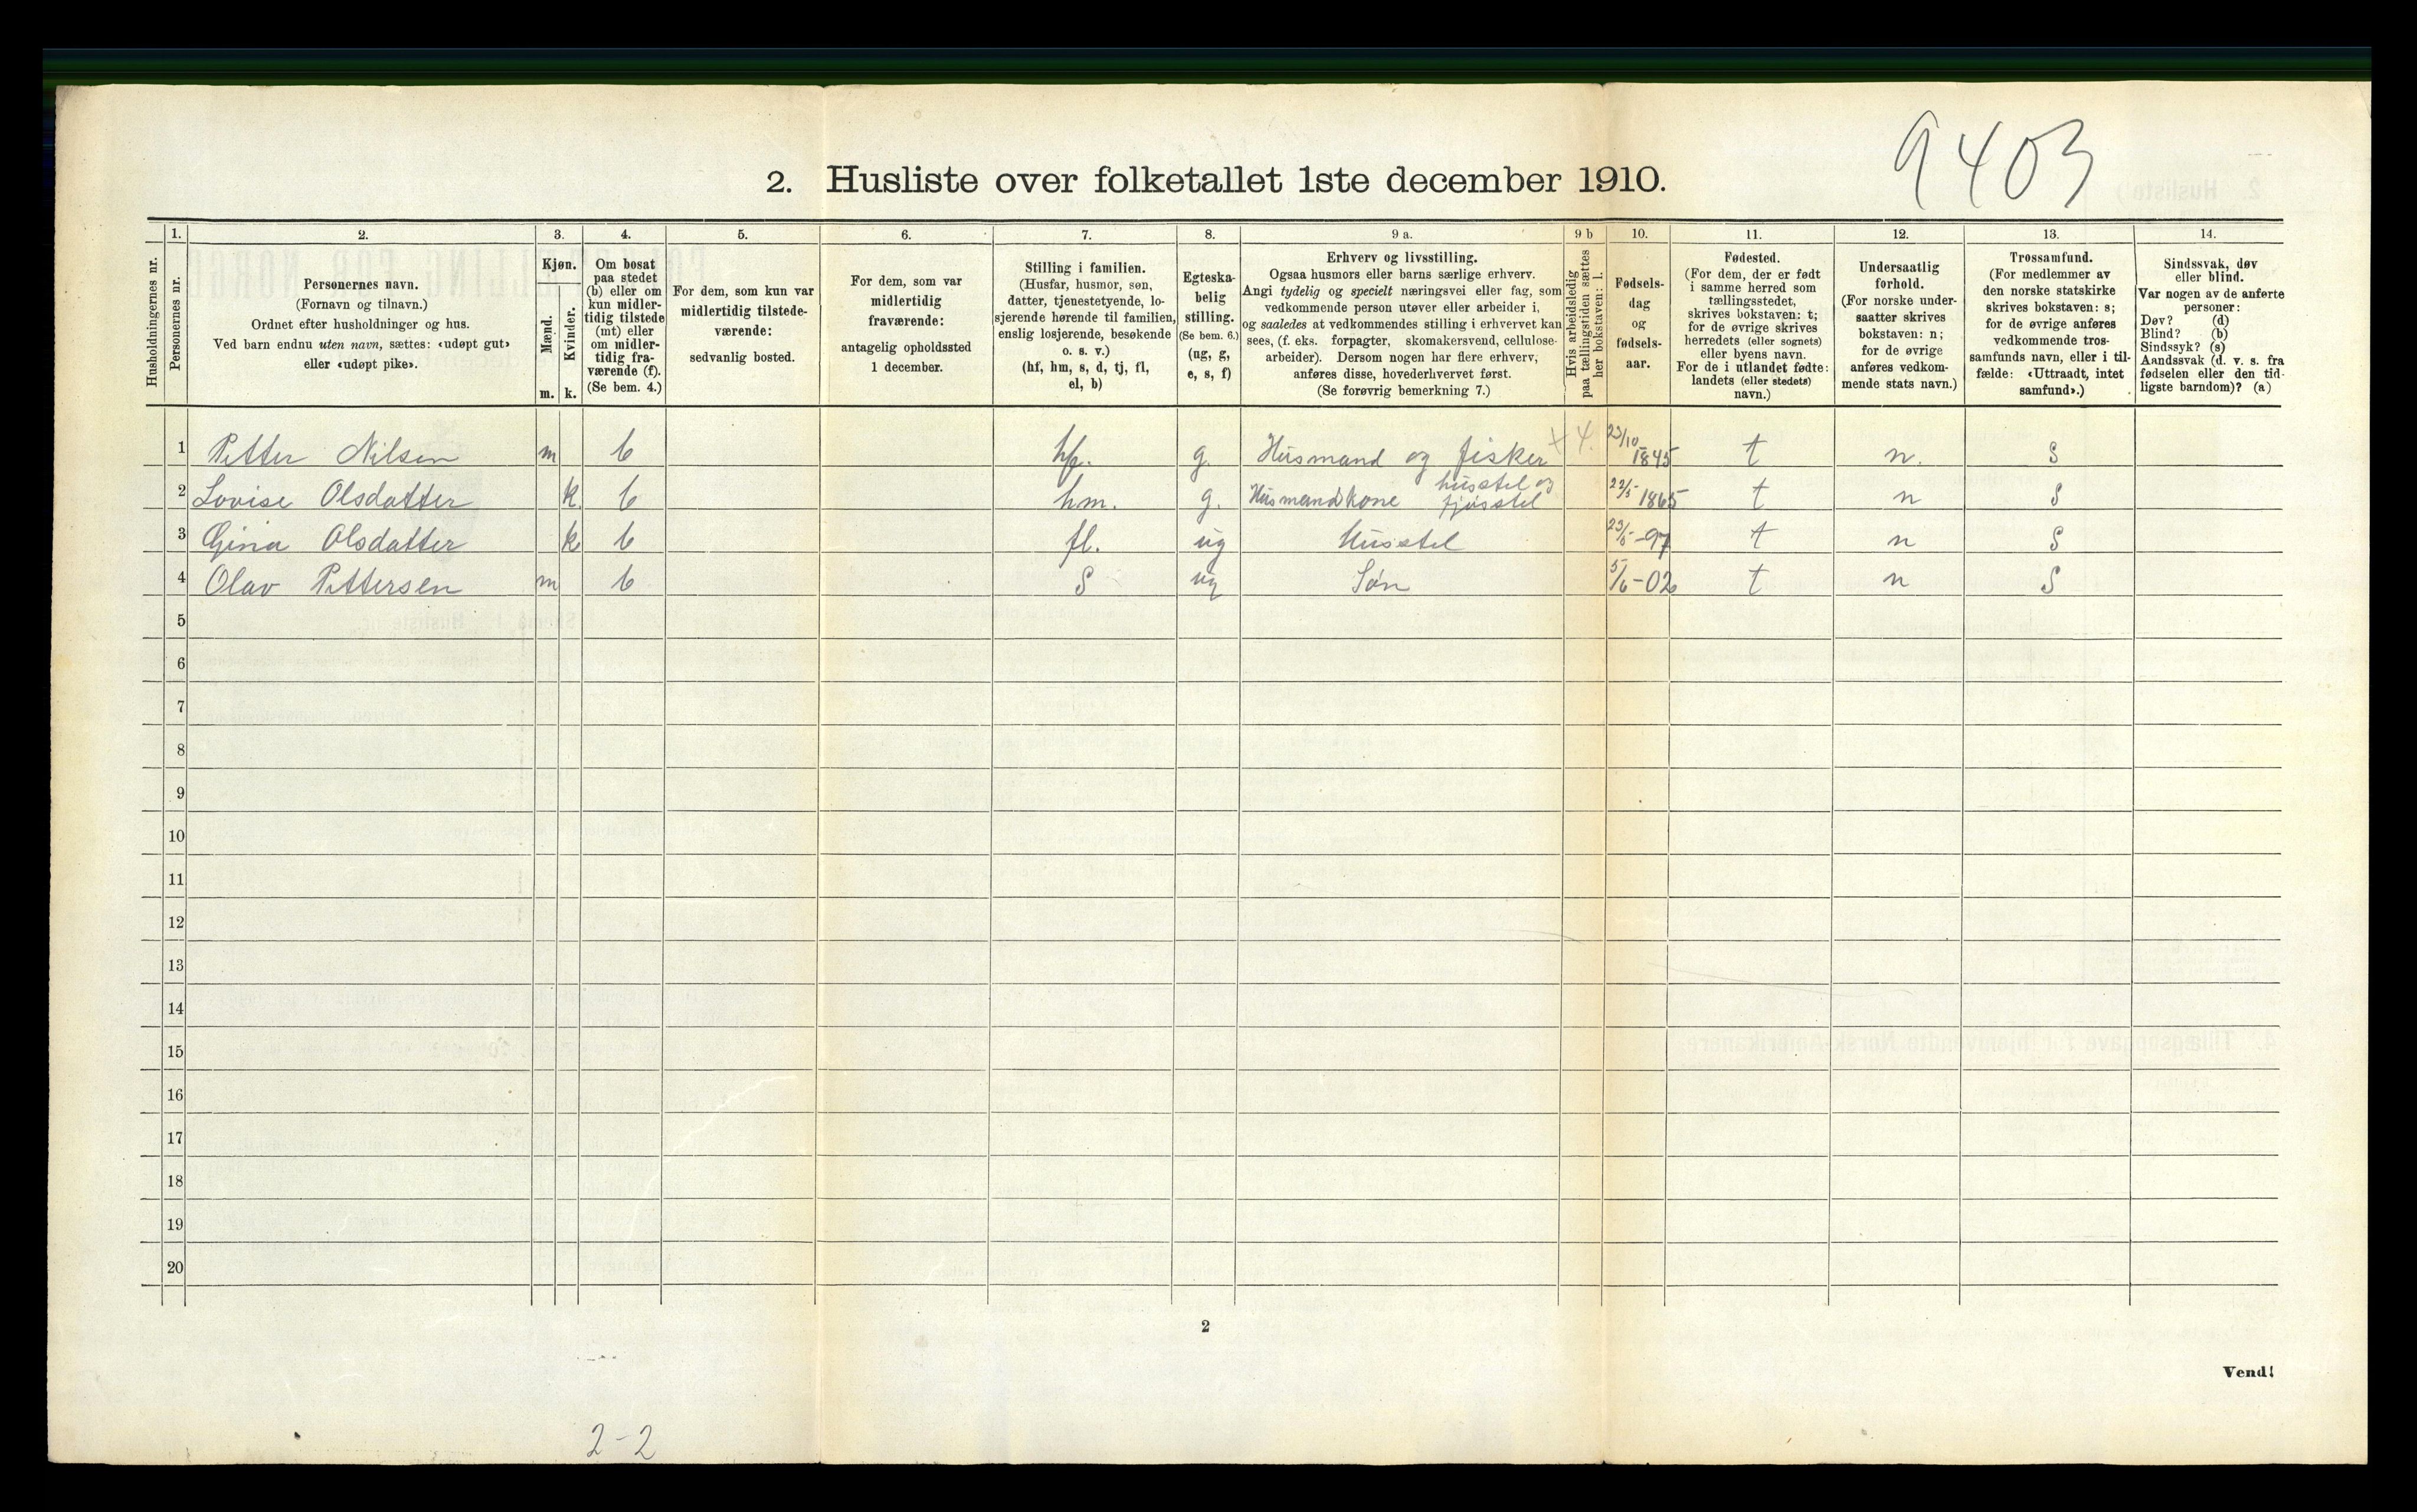 9403
2. Husliste over folketallet 1ste december 1910.
Husholdningernes nr.
1.
Personernes nr.
2.
Personernes navn.
(Fornavn og tilnavn.)
Ordnet efter husholdninger og hus.
Ved barn endnu uten navn, sættes: «udøpt gut»
eller «udøpt pike».
3.
Kjøn.
Mænd.
Kvinder.
m. k.
4.
Om bosat
paa stedet
(b) eller om
kun midler-
tidig tilstede
(mt) eller
om midler-
tidig fra-
værende (f).
(Se bem. 4.)
5.
For dem, som kun var
midlertidig tilstede-
værende:
sedvanlig bosted.
6.
For dem, som var
midlertidig
fraværende:
antagelig opholdssted
1 december.
7.
Stilling i familien.
(Husfar, husmor, søn,
datter, tjenestetyende, lo-
sjerende hørende til familien,
enslig losjerende, besøkende
o. s. v.)
(hf, hm, s, d, tj, fl,
el, b)
8.
Egteska-
belig
stilling.
(Se bem. 6.)
(ug, g,
e, s, f)
9 a.
Erhverv og livsstilling.
Ogsaa husmors eller barns særlige erhverv.
Angi tydelig og specielt næringsvei eller fag, som
vedkommende person utøver eller arbeider i,
og saaledes at vedkommendes stilling i erhvervet kan
sees, (f. eks. forpagter, skomakersvend, cellulose-
arbeider). Dersom nogen har flere erhverv,
anføres disse, hovederhvervet først.
(Se forøvrig bemerkning 7.)
9 b
Hvis arbeidsledig
paa tællingstiden sættes
her bokstaven: l.
10.
Fødsels-
dag
og
fødsels-
aar.
11.
Fødested.
(For dem, der er født
i samme herred som
tællingsstedet,
skrives bokstaven: t;
for de øvrige skrives
herredets (eller sognets)
eller byens navn.
For de i utlandet fødte:
landets (eller stedets)
navn.)
12.
Undersaatlig
forhold.
(For norske under-
saatter skrives
bokstaven: n;
for de øvrige
anføres vedkom-
mende stats navn.)
13.
Trossamfund.
(For medlemmer av
den norske statskirke
skrives bokstaven: s;
for de øvrige anføres
vedkommende tros-
samfunds navn, eller i til-
fælde: «Uttraadt, intet
samfund».)
14.
Sindssvak, døv
eller blind.
Var nogen av de anførte
personer:
Døv? (d)
Blind? (b)
Sindssyk? (s)
Aandssvak (d. v. s. fra
fødselen eller den tid-
ligste barndom)? (a)
1 Petter Nilsen m b hf. g. Husmand og fisker + 4. 23/10 1845 t n. S
2 Lovise Olsdatter k b hm. g. Husmandskone husstel og fjøsstel 22/5 1865 t n S
3 Gina Olsdatter k b fl. ug Husstel 23/5-97 t n S
4 Olav Pettersen m b S ug Søn 5/6-02 t n S
5
6
7
8
9
10
11
12
13
14
15
16
17
18
19
20
2
Vend!
2-2